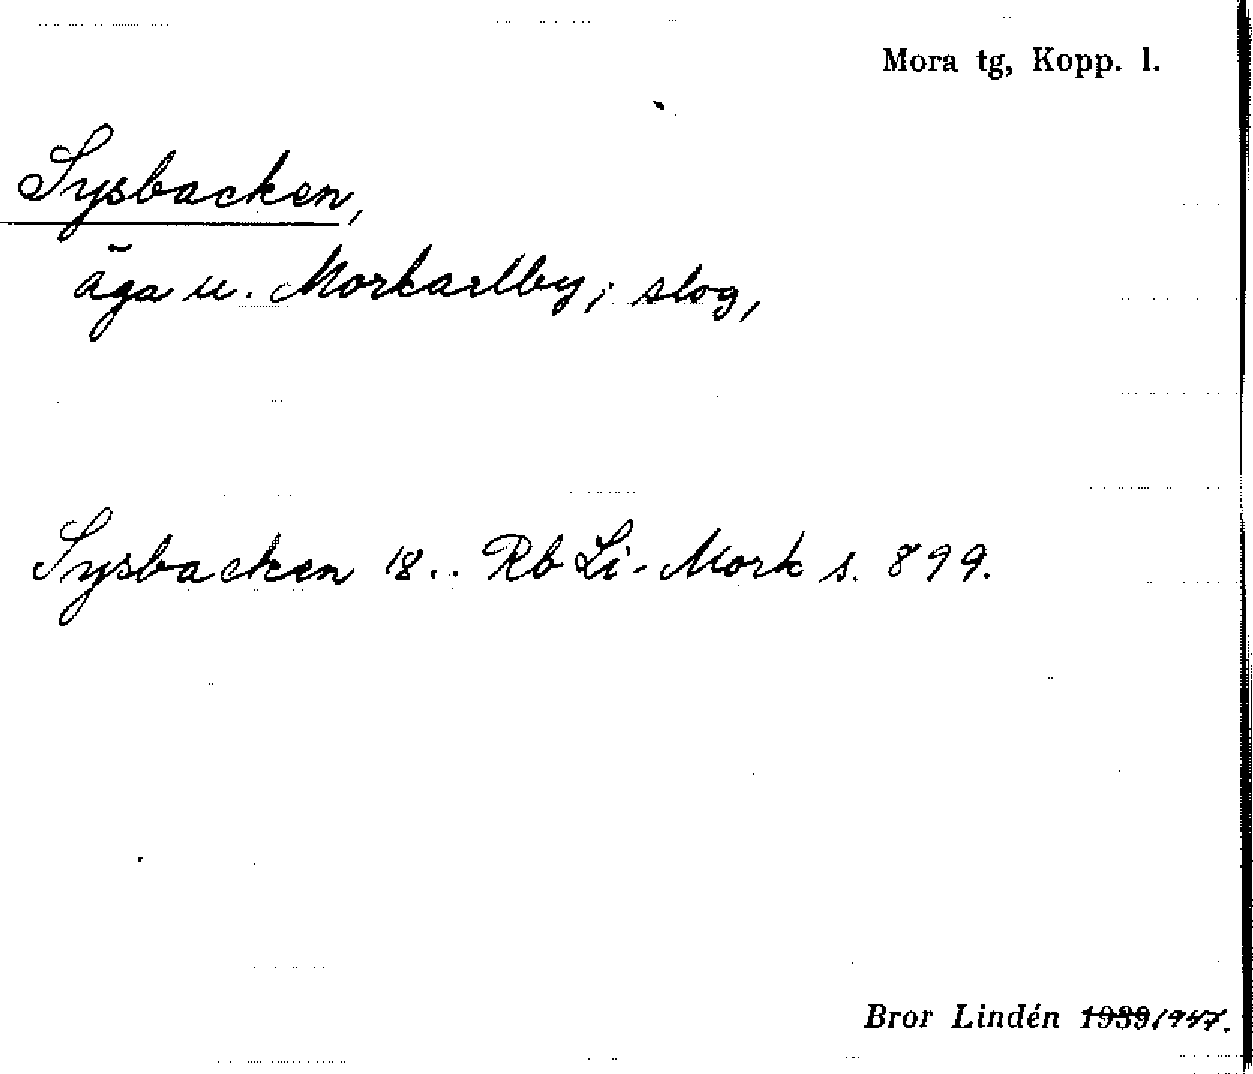 Mora tg, Kopp. l.
Sysbacken,
äga u. Morkarlby; slog,
Sysbacken 18.. Rb Li-Mork s. 899.
Bror Lindén 1939 1947.